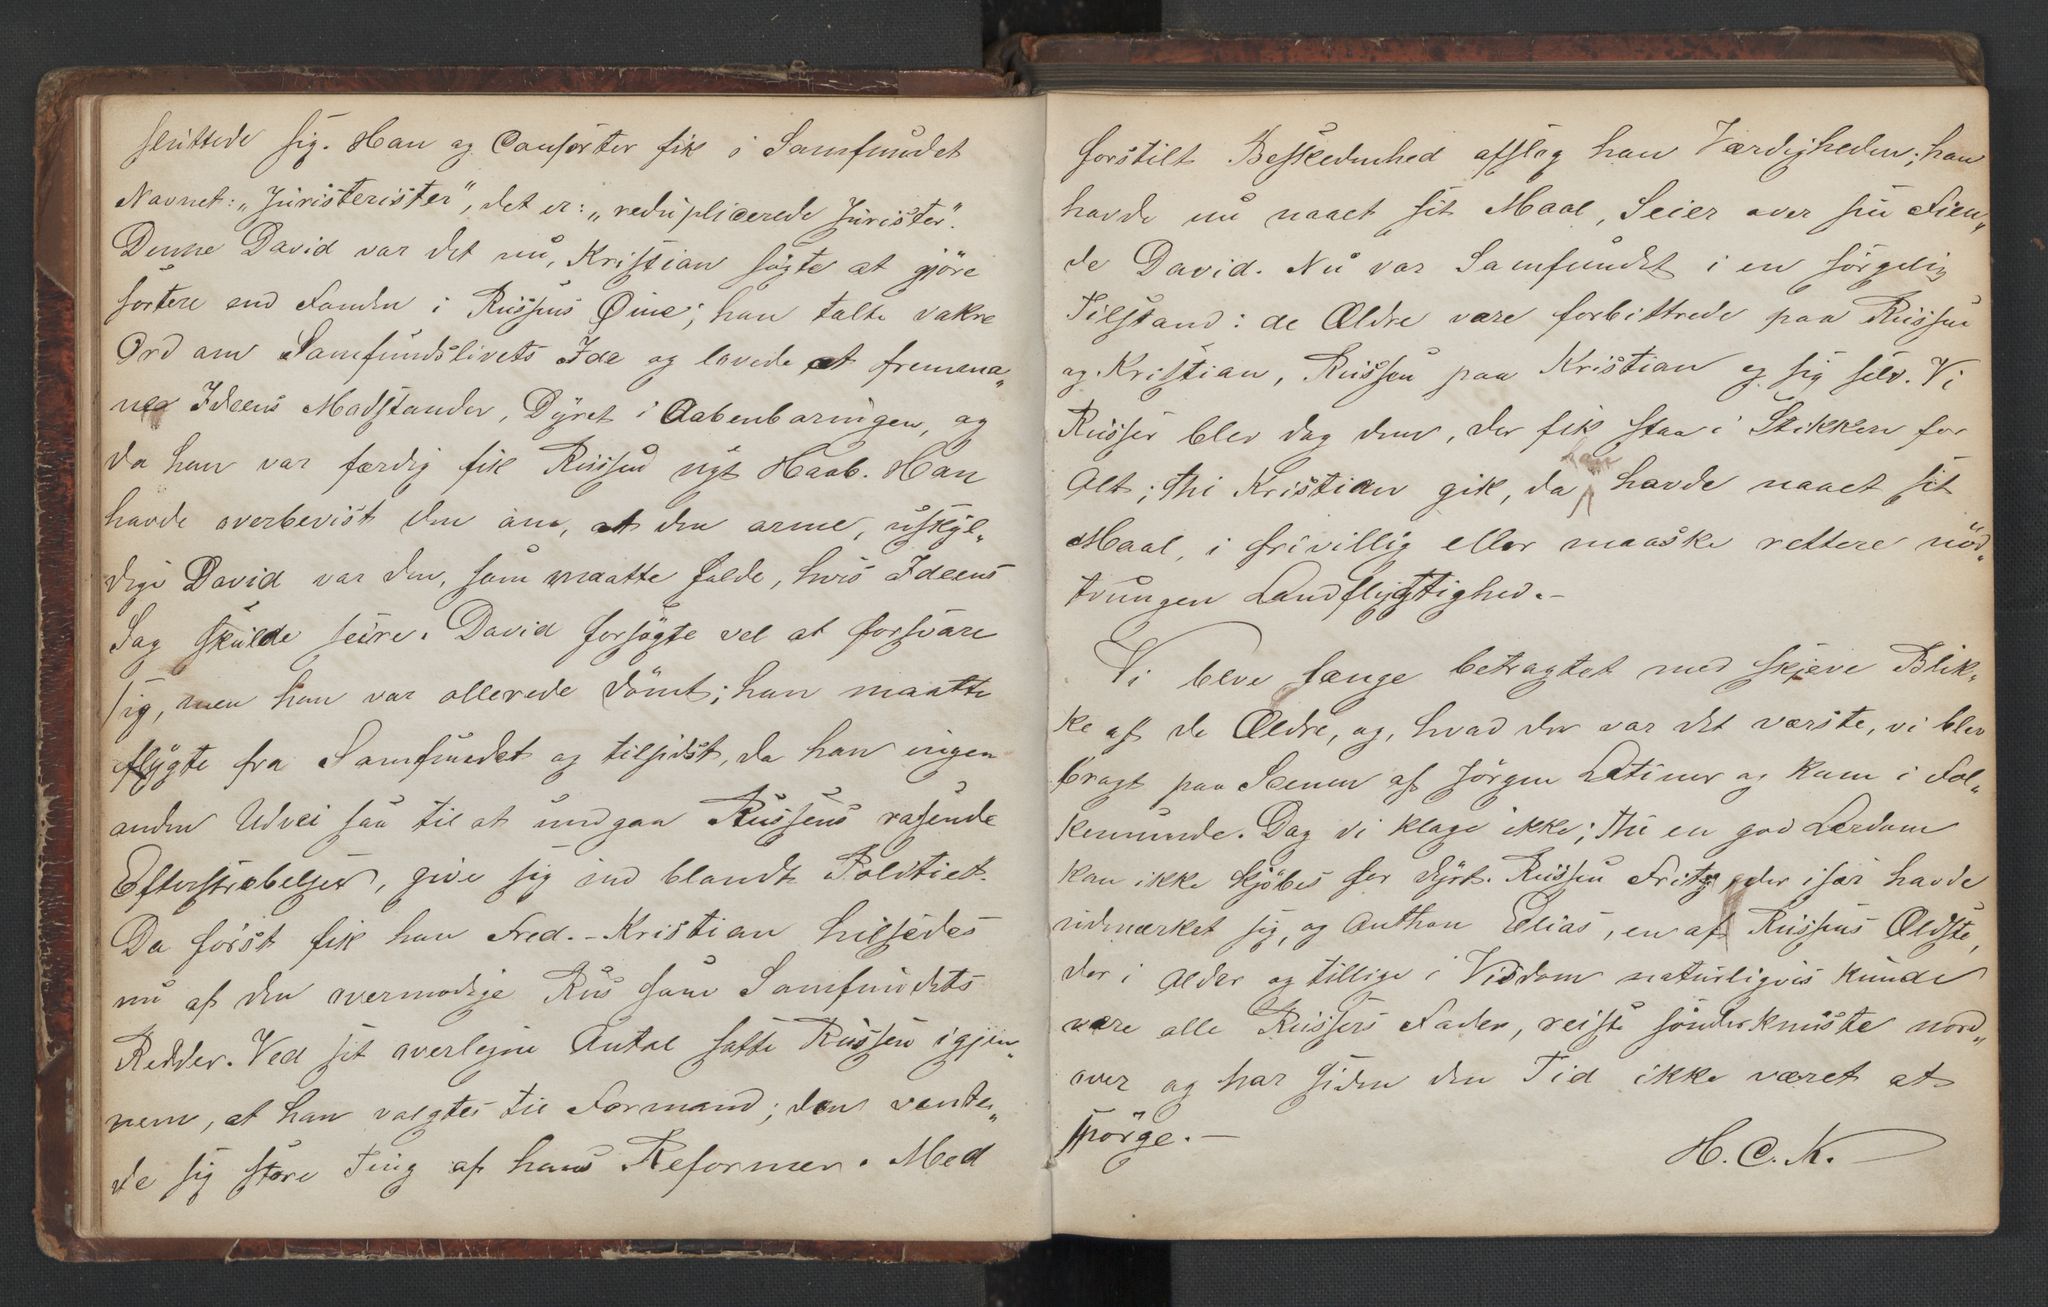 sluttede sig. Han og Consorter fik i Samfundet
Navnet: „Juristerister", det er: „reduplicerede Jurister".
Denne David var det nu, Kristian søgte at gjöre
sortere end Fanden i Russens Øine; han talte vakre
Ord om Samfundslivets Ide og lovede at fremma„
ne Ideens Modstander, Dyret i Aabenbaringen, og
da han var færdig fik Russen nyt Haab. Han
havde overbevist den om, at den arme, uskyl„
dige David var den, som maatte falde, hvis Ideens
Sag skulde seire. David forsøgte vel at forsvare
sig, men han var allerede dömt; han maatte
flygte fra Samfundet og tilsidst, da han ingen
anden Udvei saa til at undgaa Russens rasende
Efterstræbelser, give sig ind blandt Politiet.
Da först fik han Fred. – Kristian hilsedes
nu af den overmodige Rus som Samfundets
Redder. Ved sit overlegne Antal satte Russen igjen„
nem, at han valgtes til Formand; den vente„
de sig store Ting af hans Reformer. Med
forstilt Beskedenhed afslog han Værdigheden; han
havde nu naaet sit Maal, Seier over sin Fien„
de David. Nu var Samfundet i en sörgelig
Tilstand: de Ældre vare forbittrede paa Russen
og Kristian, Russen paa Kristian og sig selv. Vi
Russer blev dog dem, der fik staa i Stikken for
Alt; thi Kristian gik, da han havde naaet sit
Maal, i frivillig eller maaske rettere nöd„
tvungen Landflygtighed. –
Vi blve længe betragtet med skjeve Blik„
ke af de Ældre, og, hvad der var det værste, vi blev
bragt paa Scenen af Jörgen Latiner og kom i Fol„
kemunde. Dog vi klage ikke; thi en god Lærdom
kan ikke kjöbes for dyrt. Russen Fritz, der især havde
udmærket sig, og Anthon Elias, en af Russens Ældste,
der i Alder og tillige i Visdom naturligvis kunde
være alle Russers Fader, reiste sönderknuste nord„
over og har siden den Tid ikke været at
spörge. –
H. C. K.